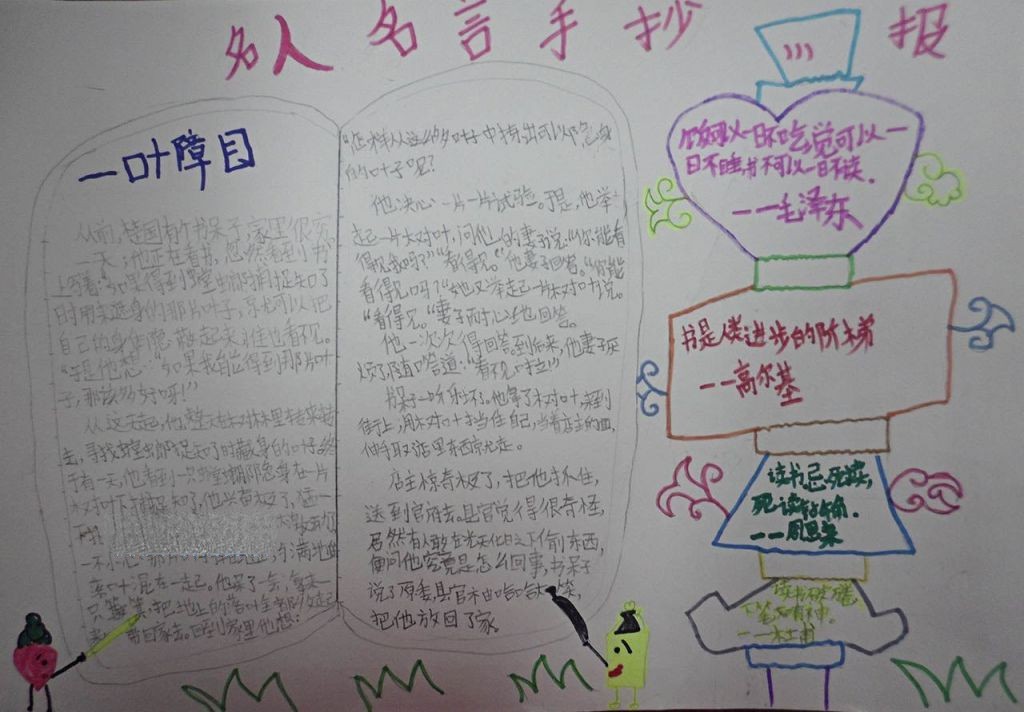 名人名言手抄报
一叶障目
从前,楚国有个书呆子,家里很穷
一天,他正在看书,忽然看到书
上写着:"如果得到螳螂捕捉知了
时用来遮身的那片叶子,就可以把
自己的身体隐蔽起来,谁也看不见。
"于是他想:"如果我能得到那片叶
子,那该多好呀!"
从这天起,他整天在树林里转来转
去,寻找螳螂捉知了时藏身的叶子,终
于有一天,他看到一只螳螂隐身在一片
树叶下捕捉知了,他兴奋极了,猛一
一不小心
叶混在一起。他呆了一会,拿来一
只簸箕,把地上的落叶全都收起
带回家去。回到家里他想:
"怎样从这么多叶子中挑出可以隐身
的叶子呢?
他决心一片一片试验。于是,他举
起一片树叶,问他的妻子说:"你能看
得见我吗?""看得见。"他妻子回答。"你能
看得见吗?"他又举起一片树叶说。
"看得见。"妻子耐心地回答。
他一次次得回答。到后来,他妻子厌
烦了随口答道:"看不见啦!"
呆子一听乐坏了。他拿了树叶,来到
街上,用树叶挡住自己,当着店主的面,
伸手取店里东西就走。
店主惊奇极了,把他抓住,
送到官府去。县官觉得很奇怪,
居然有人敢在光天化日之下偷东西,
便问他究竟是怎么回事,书呆子
说了原委,县官不由哈哈大笑,
把他放回了家。
饭可以一日不吃觉可以一
日不睡书不可以一日不读.
——毛泽东
书是人类进步的阶梯
——高尔基
读书忌死读,
——周恩来
下笔如有神.
——杜甫